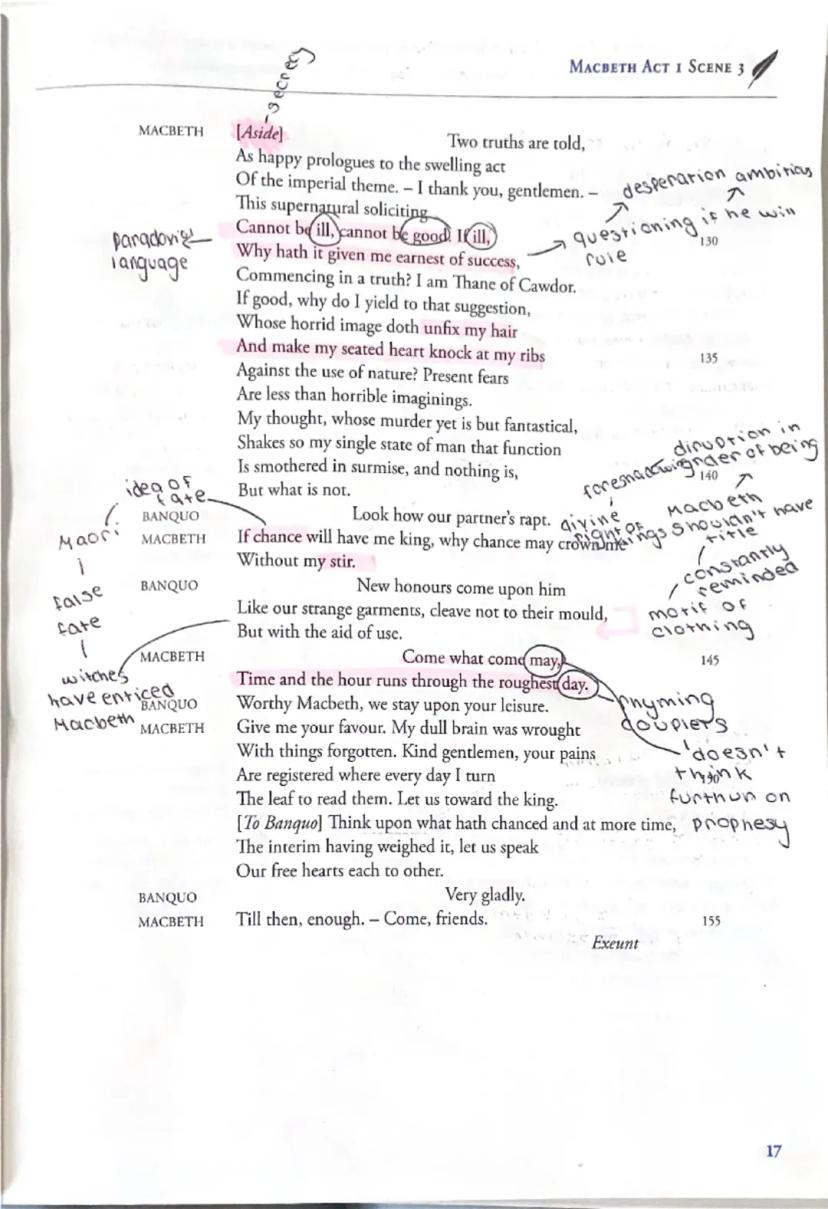 MACBETH ACT 1 SCENE 3
secrecy
MACBETH [Aside] Two truths are told,
As happy prologues to the swelling act
Of the imperial theme. – I thank you, gentlemen. –
desperation ambitious
This supernatural soliciting
Cannot be ill, cannot be good. If ill, 130
questioning if he win
rule
language
Why hath it given me earnest of success,
Commencing in a truth? I am Thane of Cawdor.
If good, why do I yield to that suggestion,
Whose horrid image doth unfix my hair
And make my seated heart knock at my ribs 135
Against the use of nature? Present fears
Are less than horrible imaginings.
My thought, whose murder yet is but fantastical,
Shakes so my single state of man that function
Is smothered in surmise, and nothing is, 140
But what is not.
in
order of being
idea of
fate
BANQUO Look how our partner's rapt.
MACBETH If chance will have me king, why chance may crown me
Without my stir.
divine
right of
kings
Macbeth
shouldn't have
title
constantly
reminded
motif of
clothing
false
fate
witches
have enticed
Macbeth
BANQUO New honours come upon him
Like our strange garments, cleave not to their mould,
But with the aid of use.
MACBETH Come what come may, 145
Time and the hour runs through the roughest day.
rhyming
BANQUO Worthy Macbeth, we stay upon your leisure.
MACBETH Give me your favour. My dull brain was wrought
With things forgotten. Kind gentlemen, your pains
Are registered where every day I turn
The leaf to read them. Let us toward the king.
[To Banquo] Think upon what hath chanced and at more time,
The interim having weighed it, let us speak
Our free hearts each to other.
doesn't
think
on
prophesy
BANQUO Very gladly.
MACBETH Till then, enough. – Come, friends. 155
Exeunt
17